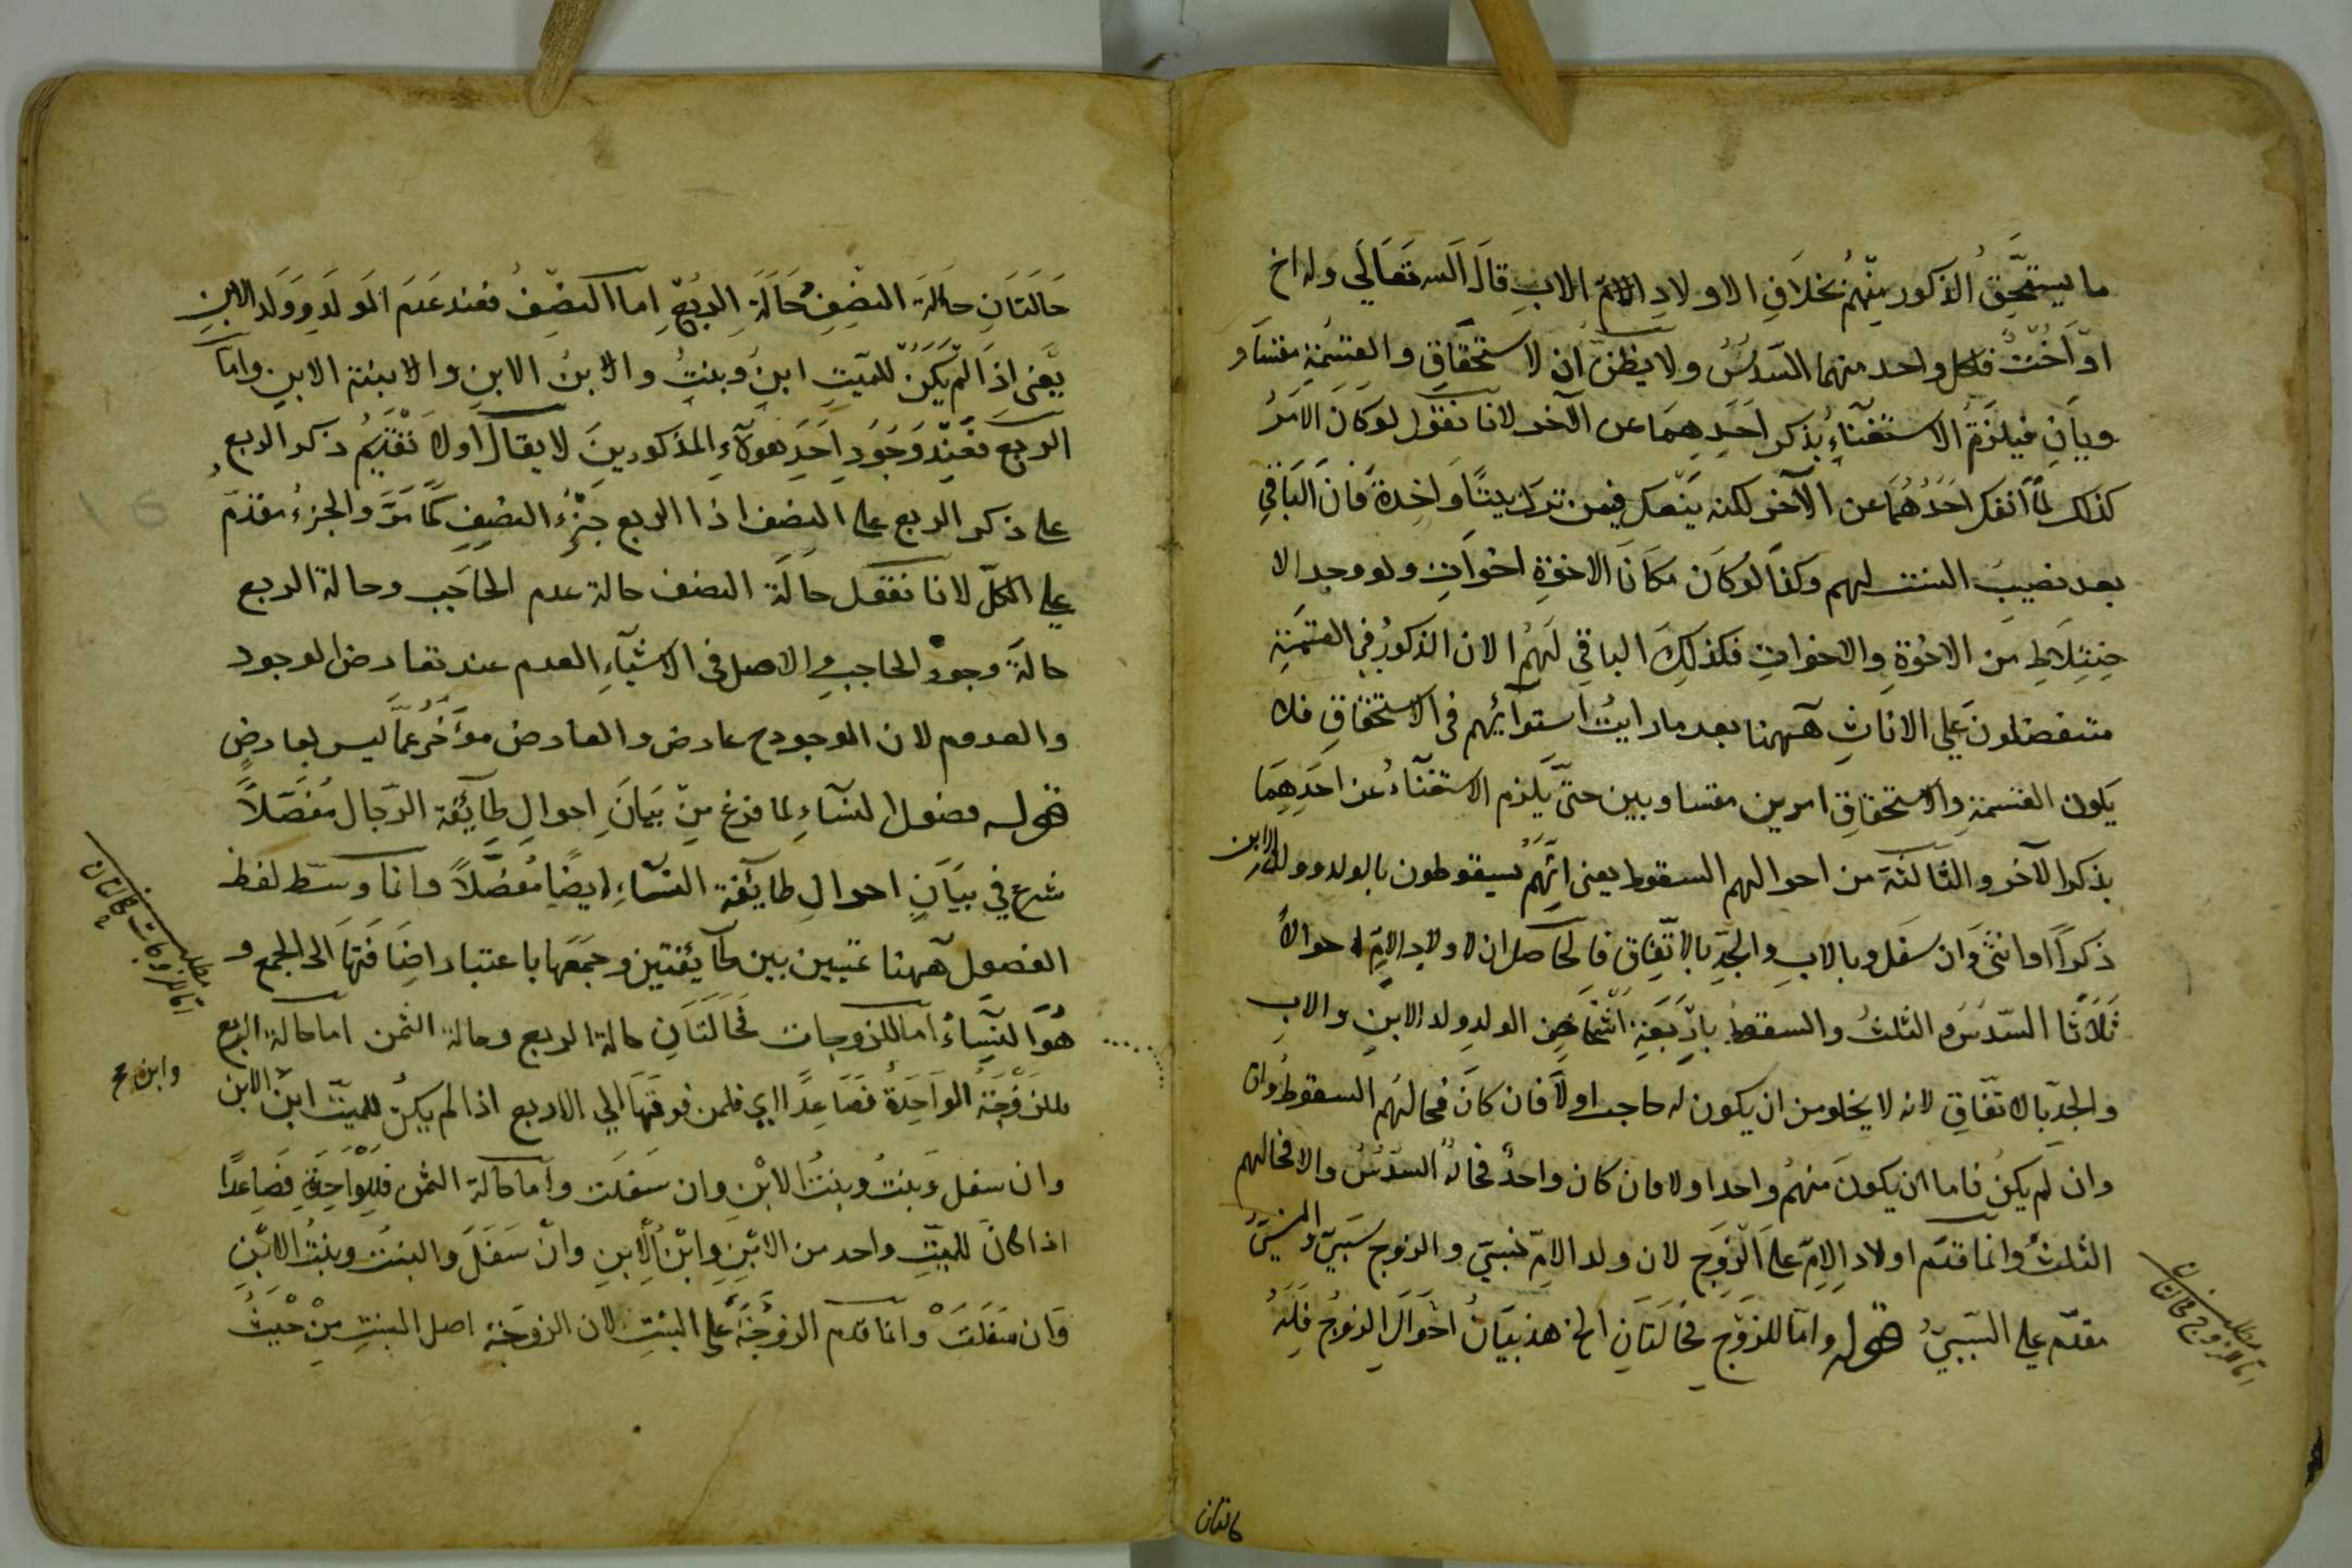 ما يستحق الذكور منهم بخلاف الاولاد الام الاب قال الله تعالي وله اخ
او اخت فلكل واحد منهما السدس ولا يظن ان لاستحقاق والقسمة متساو
ويان فيلزم الاستغناء بذكر احدهما عن الآخر لانا نقول لو كان الامر
كذلك لما انفك احدهما عن الآخر لكنه ينفك فيمن ترك بنتا واخدة فان الباقي
بعد نصيب البنت لهم وكذا لو كان مكان الاخوة اخوات ولو وجد الا
ختلاط من الاخوة والاخوات فكذلك الباقي لهم الا ان الذكور في القسمة
متفضلون علي الاناث ههنا بعد ما رايت استوائهم في الاستحقاق فلا
يكون القسمة والاستحقاق امرين متساويين حتى يلزم الاستغناء عن احدهما
بذكر الآخر والثالثة من احوالهم السقوط يعني انهم يسقوطون بالولد وولد الابن
ذكرا او انثى وان سفل وبالاب والجد بالاتفاق فالحاصل ان لاولاد الام احوالا
ثلاثا السدس والثلث والسقوط باربعة اشخاص الولد ولد الابن والاب
والجد بالاتفاق لانه لا يخلو من ان يكون له حاجب اولا فان كان فحالهم السقوط وان
وان لم يكن فاما ان يكون منهم واحدا ولا فان كان واحد فحاله السدس والا فحالهم
الثلث وانما قدم اولاد الام على الزوج لان ولد الام نسبي والزوج سببي والنسبي
مقدم علي السببي قوله واما للزوج فحالتان الخ هذ بيان احوال الزوج فله
مطلب اما للزوج فحالتان
حالتان
حالتان حالة النصف حالة الربع اما النصف فعند عدم الولد وولد الابن
يعني اذا لم يكن للميت ابن وبنت والابن الابن والابنة الابن واما
الربع فعند وجود احد هولاء المذكورين لا يقال اولا تقديم ذكر الربع
علي ذكر الربع على النصف اذا الربع جزء النصف كما مر والجزء مقدم
علي الكل لانا نقول حالة النصف حالة عدم الحاجب وحالة الربع
حالة وجود الحاجب والاصل في الاشياء العدم عند تعارض الوجود
والعدم لان الوجود عارض والعارض مؤخر عما ليس بعارض
قوله فصول النساء لما فرغ من بيان احوال طايفة الرجال مفصلا
شرع في بيان احوال طايفة النساء ايضا مفصلا وانما وسط لفظ
الفصول ههنا تبيين بين طايفتين وجمعها باعتبار اضافتها الى الجمع و
هو النساء اما للزوجات فحالتان حالة الربع وحالة الثمن اما حالة الربع
فللزوجة الواحدة فصاعدا اي فلمن فوقها الي الاربع اذا لم يكن للميت ابن الابن
وان سفل وبنت وبنت الابن وان سفلت واما حالة الثمن فللواحدة فصاعدا
اذا كان للميت واحد من الابن وابن الابن وان سفل والبنت وبنت الابن
وان سفلت وانما قدم الزوجة على البنت لان الزوجة اصل البنت من حيث
مطلب اما للزوجات فحالتان
وابن صح